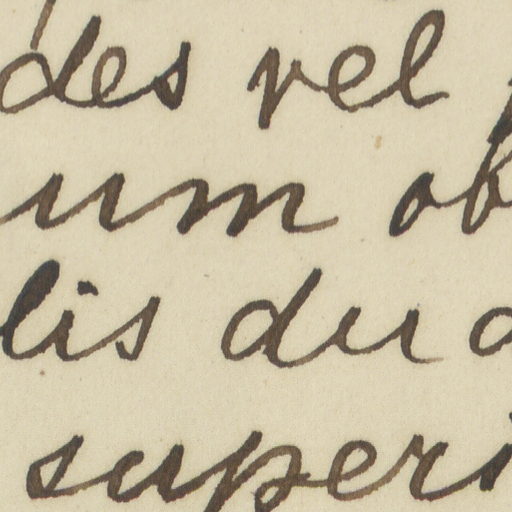 des vel
um ob
lis du
superi